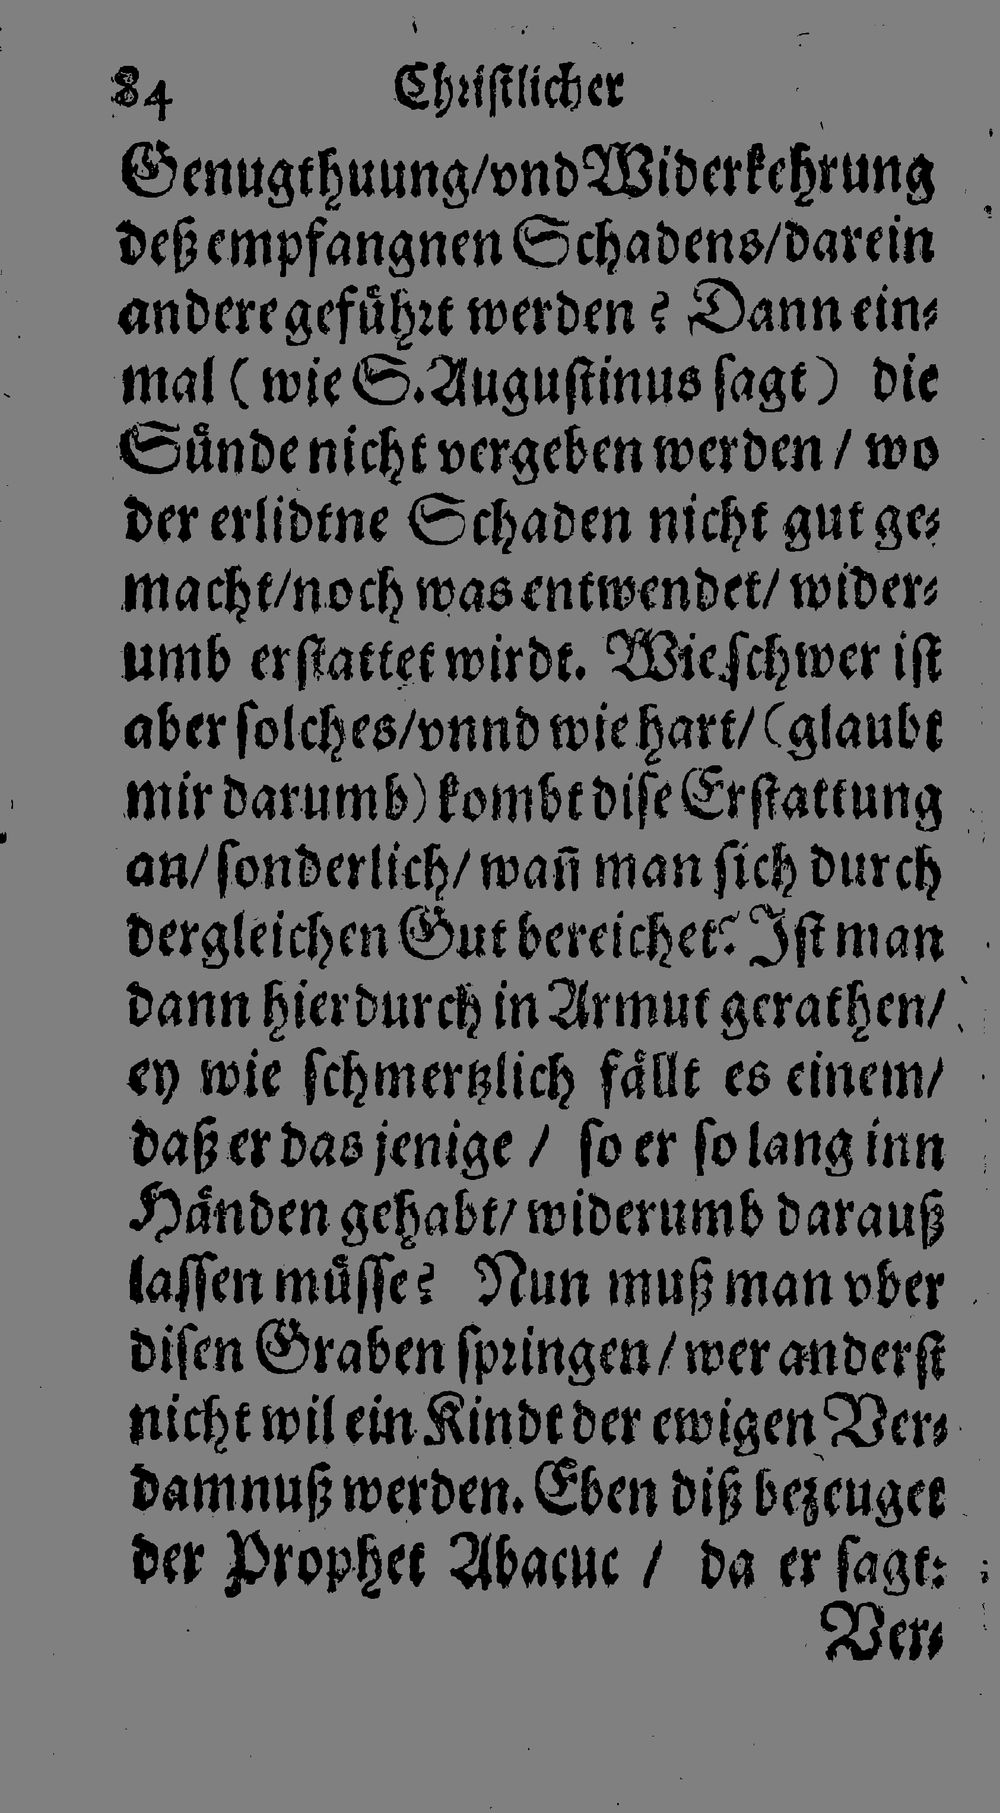 84 Chriſtlicher
Genugthuung/vnd Widerkehrung
deß empfangnen Schadens/darein
andere gefuͤhrt werden? Dann ein⸗
mal (wie S. Auguſtinus ſagt) die
Suͤnde nicht vergeben werden / wo
der erlidtne Schaden nicht gut ge⸗
macht/noch was entwendet/ wider⸗
umb erſtattet wirdt. Wie ſchwer iſt
aber ſolches/vnnd wie hart/ (glaubt
mir darumb) kombt diſe Erſtattung
an/ ſonderlich/ wañ man ſich durch
dergleichen Gut bereichet? Iſt man
dann hierdurch in Armut gerathen/
ey wie ſchmertzlich faͤllt es einem/
daß er das jenige / ſo er ſo lang inn
Haͤnden gehabt/ widerumb darauß
laſſen muͤſſe? Nun muß man vber
diſen Graben ſpringen/ wer anderſt
nicht wil ein Kindt der ewigen Ver⸗
damnuß werden. Eben diß bezeuget
der Prophet Abacuc / da er ſagt:
Ver⸗